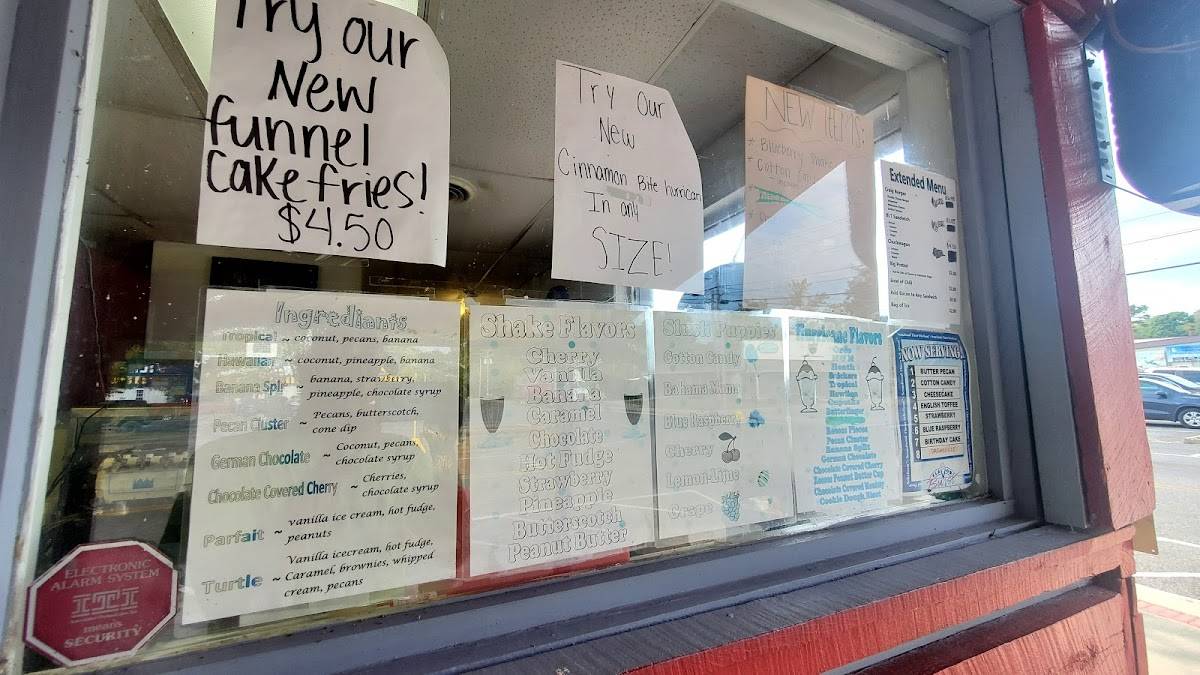 Try our
New
funnel
Cake fries!
$4.50
Try Our
New
Cinnamon Bite hurrican
In any
SIZE!
NEW ITEMS:
* Blueberry
* Cotton
Extended Menu
Big Pretzel
Bowl of Chili
Add Bacon to Any Sandwich
Bag of Ice
Ingrediants
Tropical ~ coconut, pecans, banana
Hawaiian ~ coconut, pineapple, banana
Banana Split ~ banana, strawberry,
pineapple, chocolate syrup
Pecan Cluster ~ Pecans, butterscotch,
cone dip
German Chocolate ~ Coconut, pecans,
chocolate syrup
Chocolate Covered Cherry ~ Cherries,
chocolate syrup
Parfait ~ vanilla ice cream, hot fudge,
peanuts
Turtle ~ Vanilla icecream, hot fudge,
Caramel, brownies, whipped
cream, pecans
Shake Flavors
Cherry
Vanilla
Banana
Caramel
Chocolate
Hot Fudge
Strawberry
Pineapple
Butterscotch
Peanut Butter
Slush Puppies
Cotton Candy
Bahama Mama
Blue Raspberry
Cherry
Lemon-Lime
Grape
Hurricane Flavors
Oreo
Heath
Snickers
Tropical
Hawaiian
Butterfinger
Reeses Pieces
Pecan Cluster
Banana Split
German Chocolate
Chocolate Covered Cherry
Reeses Peanut Butter Cup
Chocolate Covered Monkey
NOW SERVING
1 BUTTER PECAN
2 COTTON CANDY
3 CHEESECAKE
4 ENGLISH TOFFEE
5 STRAWBERRY
6 BLUE RASPBERRY
7 BIRTHDAY CAKE
8
ELECTRONIC
ALARM SYSTEM
means
SECURITY